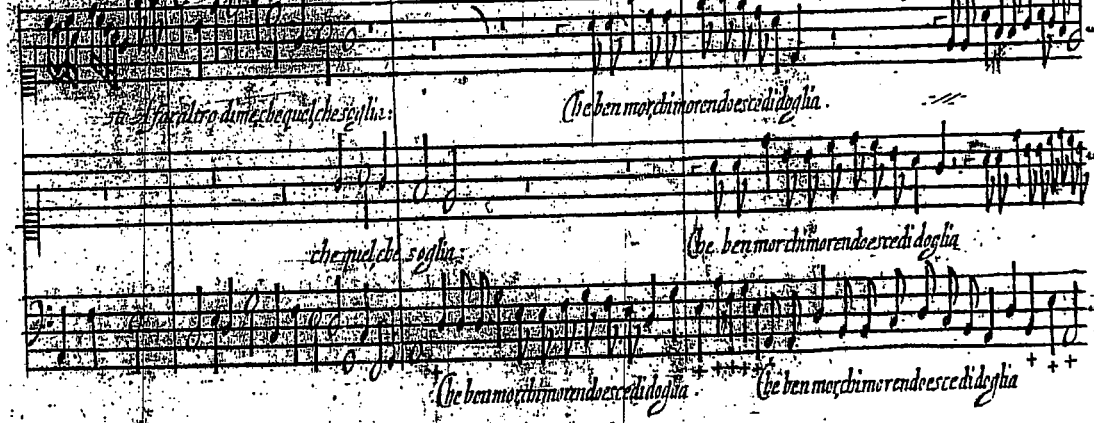 far altro di me, che quel che soglia: Che ben mor chi morendo esce di doglia.
che quel che soglia: Che ben mor chi morendo esce di doglia
Che ben mor chi morendo esce di doglia. Che ben mor chi morendo esce di doglia